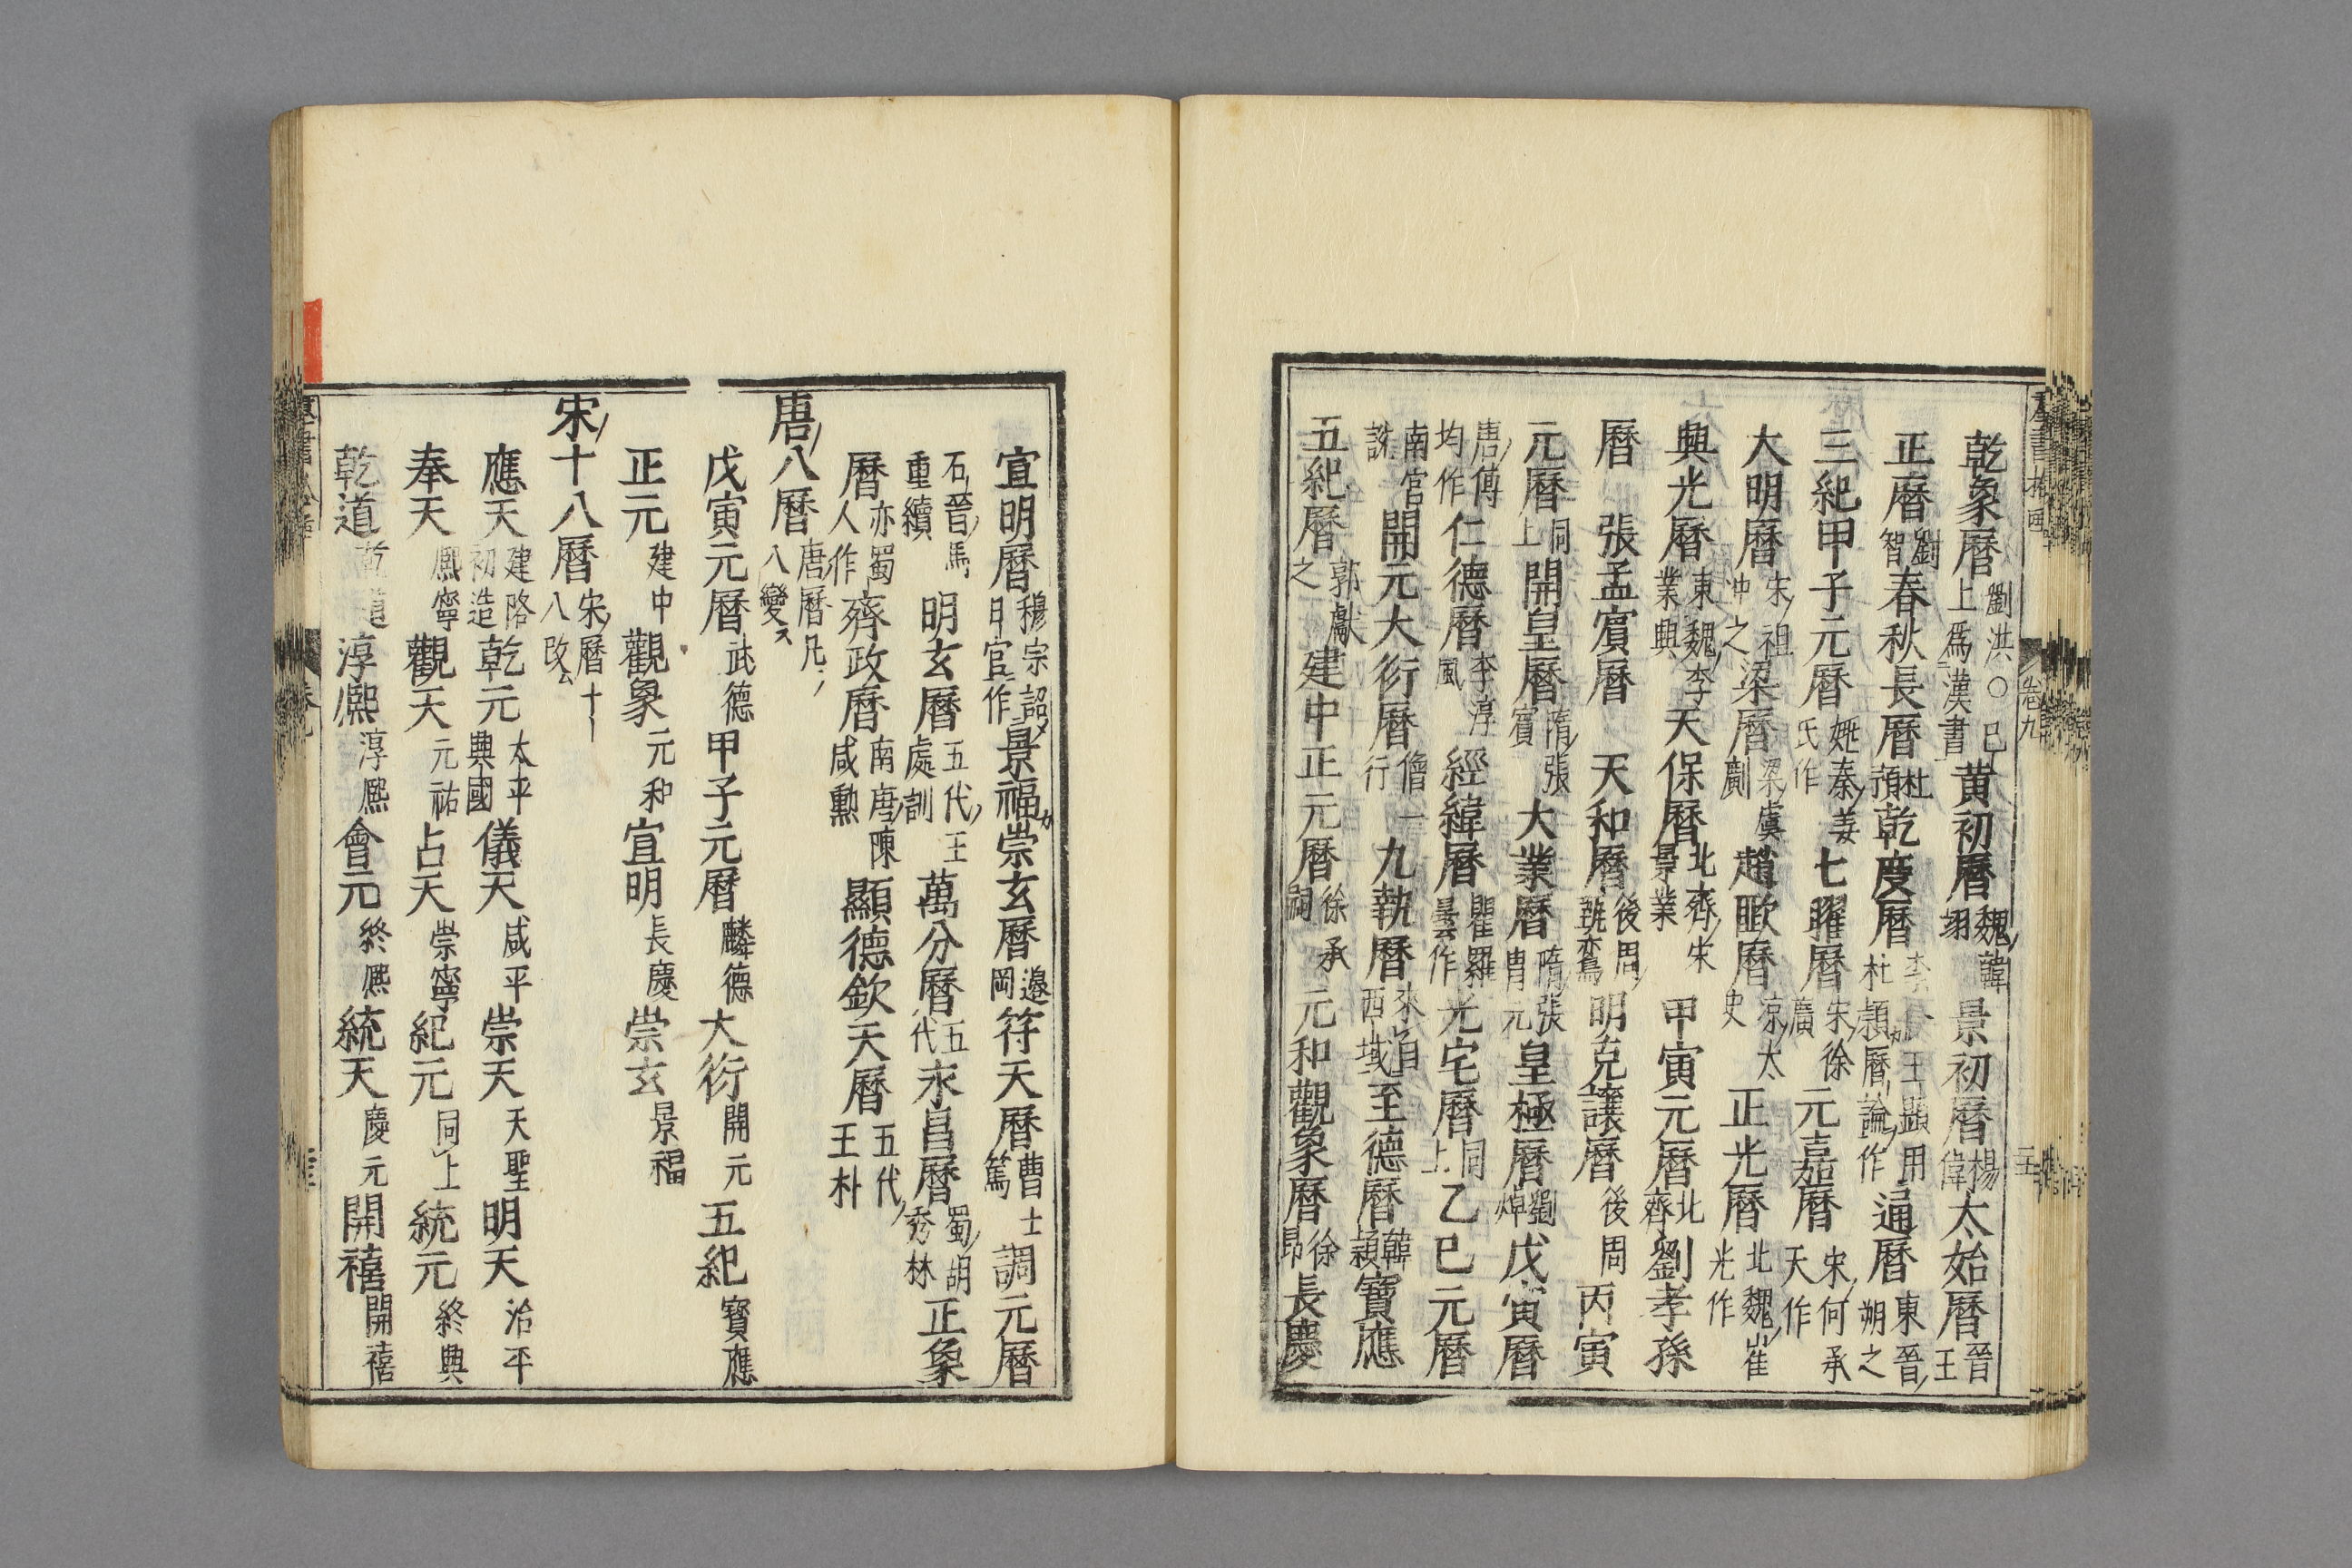 乾象曆劉洪〇已上爲漢書黄初曆魏韓翊景初曆楊偉太始曆晉王
正曆劉智春秋長曆杜預乾度曆李脩王顯用杜頴曆論作通曆東晉王朔之
三紀甲子元曆姚秦姜氏作七曜曆宋徐廣元嘉曆宋何承天作
大明曆宋祖冲之梁曆梁虞𠠎趙𢾺曆凉太史正光曆北魏崔光作
興光曆東魏李業興天保曆北齊宋景業甲寅元曆北齊劉孝孫
曆張孟賓曆天和曆後周甄鸞明克讓曆後周丙寅
元曆同上開皇曆隋張賓大業曆隋張冑元皇極曆劉焯戊寅曆
唐傅均作仁德曆李淳風經緯曆瞿羅曇作光宅曆同上乙巳元曆
南宮說開元大衍曆僧一行九執曆來自西域至德曆韓頴寶應
五紀曆郭獻之建中正元曆徐承嗣元和觀象曆徐昂長慶
宣明曆穆宗詔日官作景福崇玄曆邊岡符天曆曹士蔿調元曆
石晉馬重績明玄曆五代王處訥萬分曆五代永昌曆蜀胡秀林正象
曆亦蜀人作齊政曆南唐陳咸勲顯德欽天曆五代王朴
唐八曆唐曆凡八變
戊寅元曆武德甲子元曆麟德大衍開元五紀寳應
正元建中觀象元和宣明長慶崇玄景福
宋十八曆宋曆十八改
應天建隆初造乾元太平興國儀天咸平崇天天聖明天治平
奉天熈寧觀天元祐占天崇寧紀元同上統元終興
乾道乾道淳熈淳熈會元終熈統天慶元開禧開禧
卷九